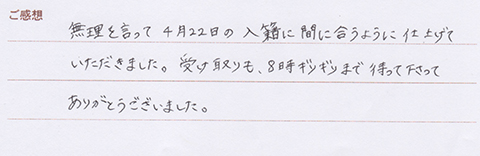 ご感想
無理を言って4月22日の入籍に間に合うように仕上げて
いただきました。受け取りも、8時ギリギリまで待って下さって
ありがとうございました。